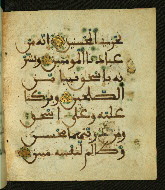 نجزى المحسنين انه من
عبادنا المومنين وبشر
نه باسحق نبيا من
الصلحين وبركنا
عليه وعلى اسحق
ومن ذريتهما محسن
وظالم لنفسه مبين